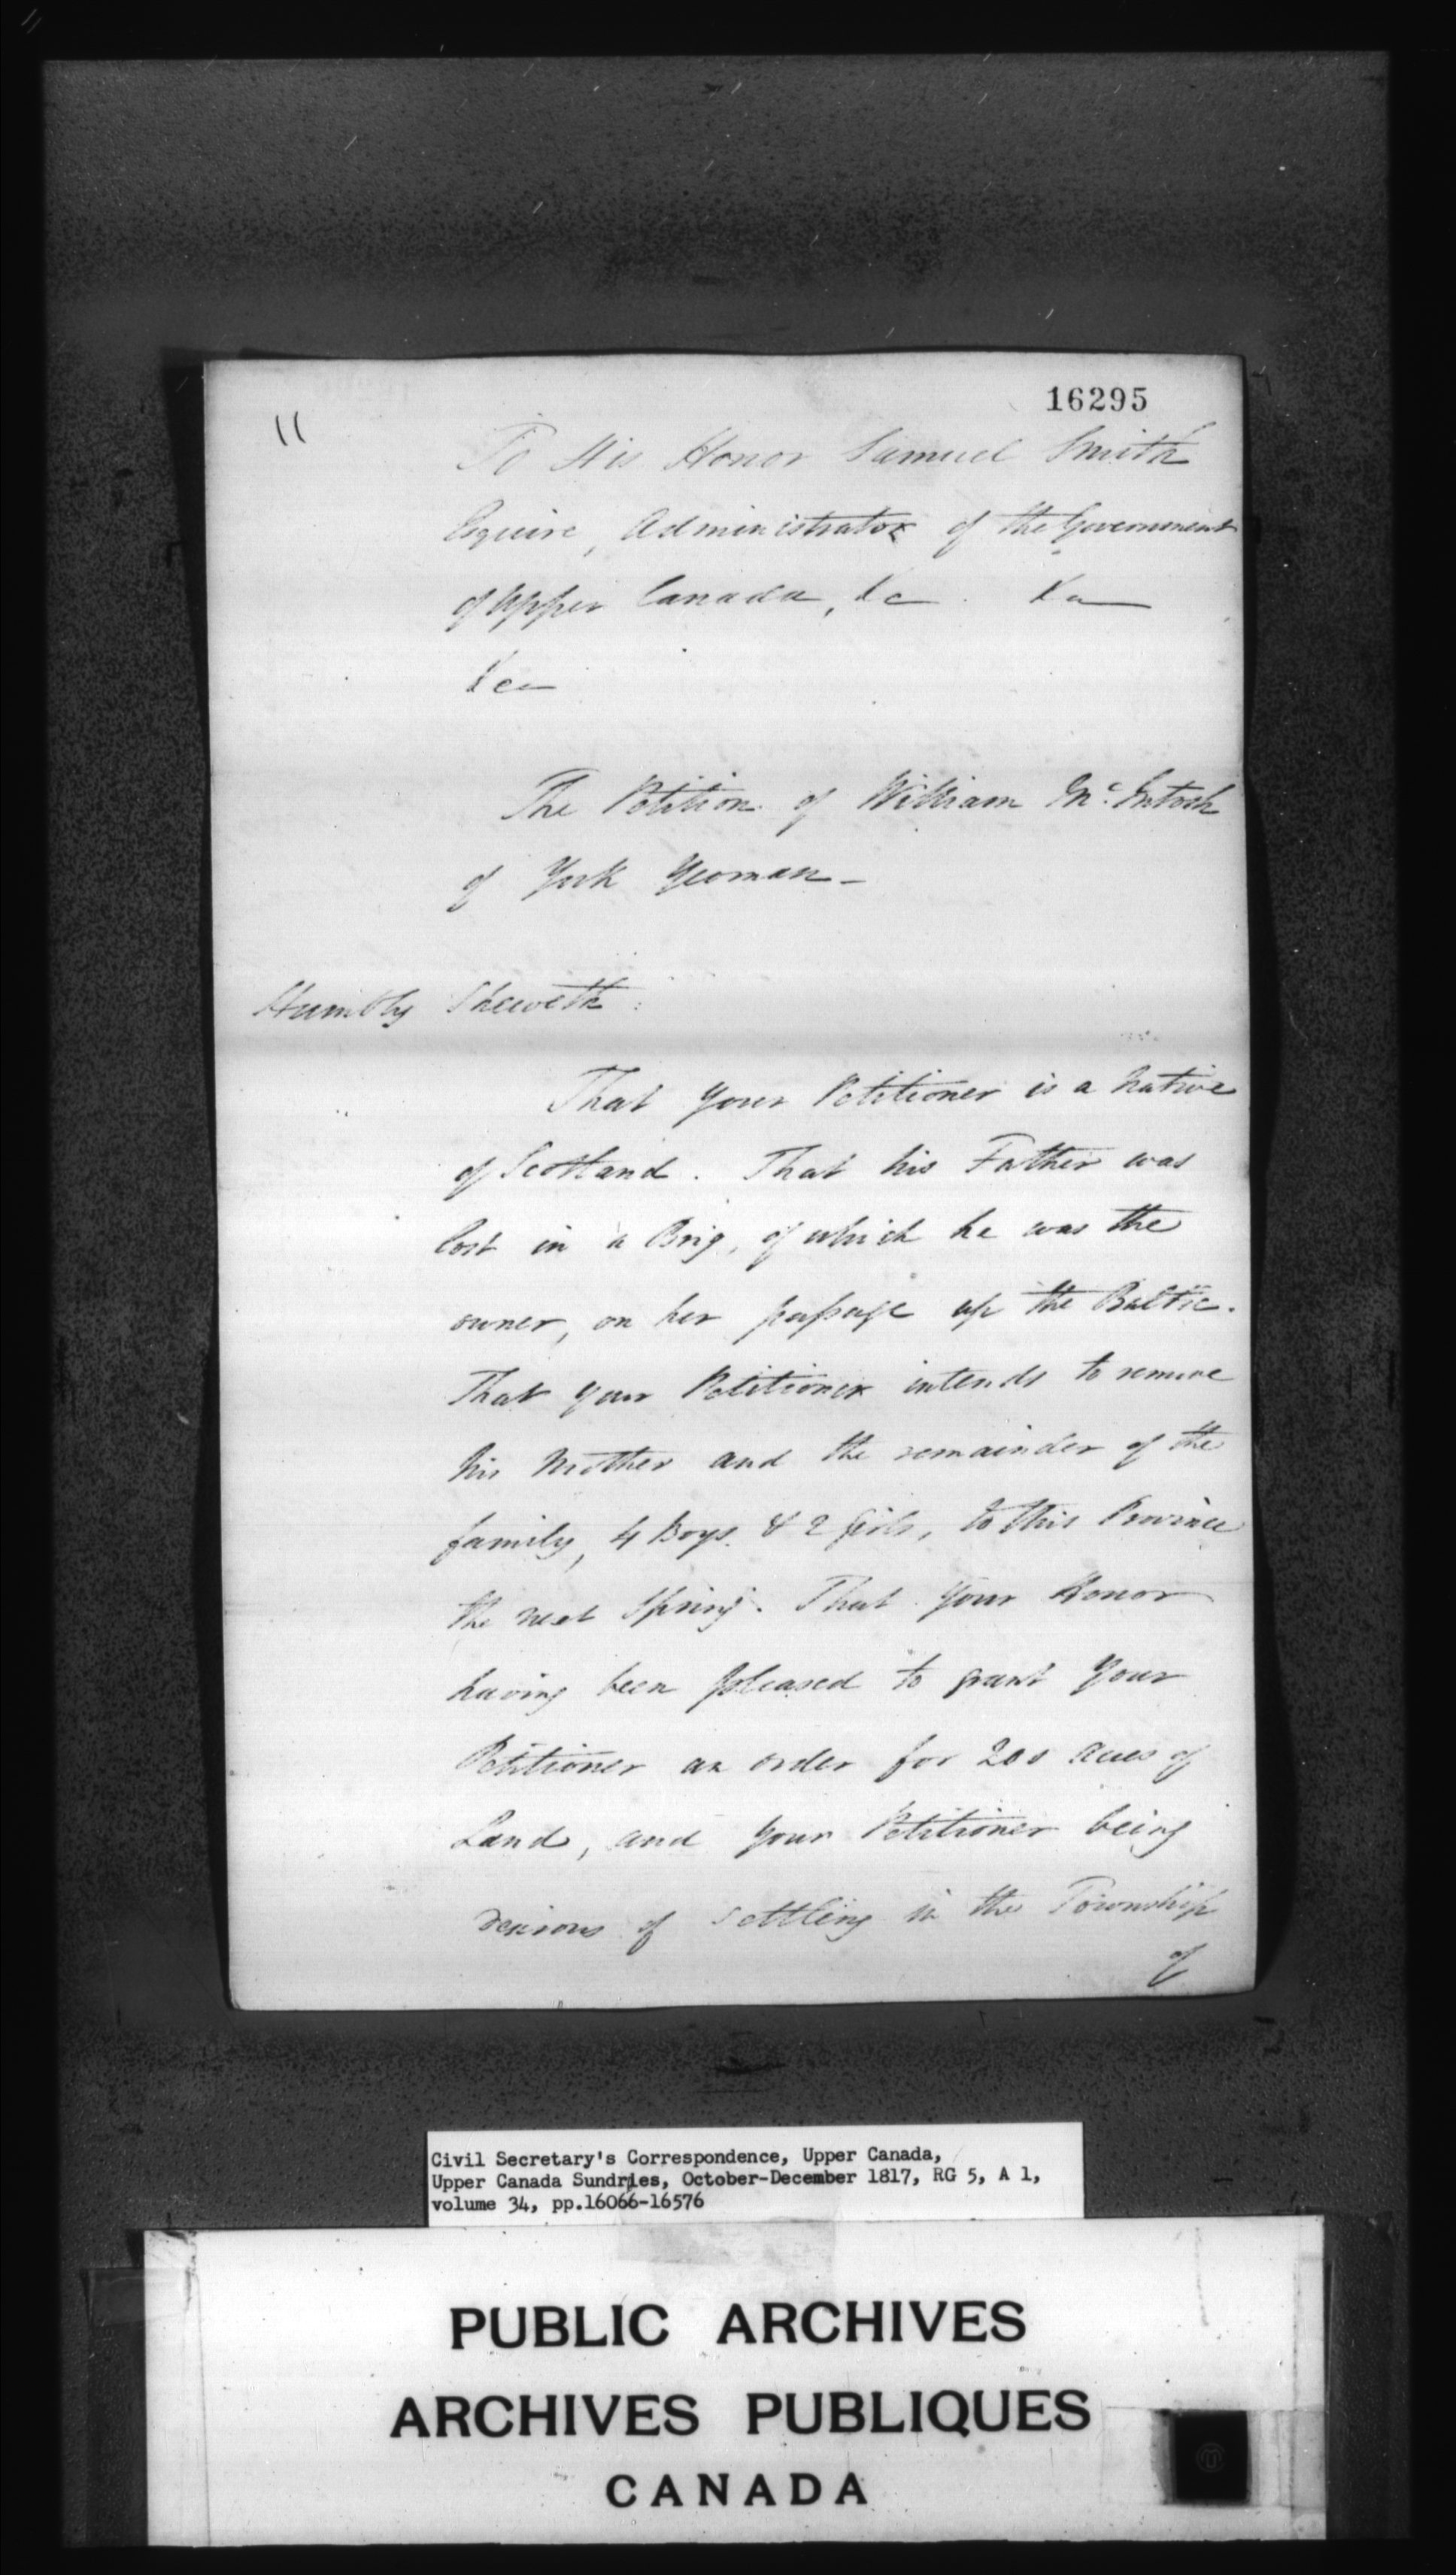 16295
11
To His Honor Samuel Smith
Esquire, Administrator of the Government
of Upper Canada, &c &c
&c
The Petition of William Mc.Intosh
of York Yeoman -
Humbly Sheweth :
That your Petitioner is a Native
of Scotland. That his Father was
lost in a Brig, of which he was the
owner, on her passage up the Baltic.
That your Petitioner intends to remove
his Mother and the remainder of the
family, 4 Boys & 2 Girls, to this Province
the next Spring. That your Honor
having been pleased to grant your
Petitioner an order for 200 acres of
Land, and your Petitioner being
desirous of settling in the Township
of
Civil Secretary's Correspondence, Upper Canada,
Upper Canada Sundries, October-December 1817, RG 5, A 1,
volume 34, pp.16066-16576
PUBLIC ARCHIVES
ARCHIVES PUBLIQUES
CANADA